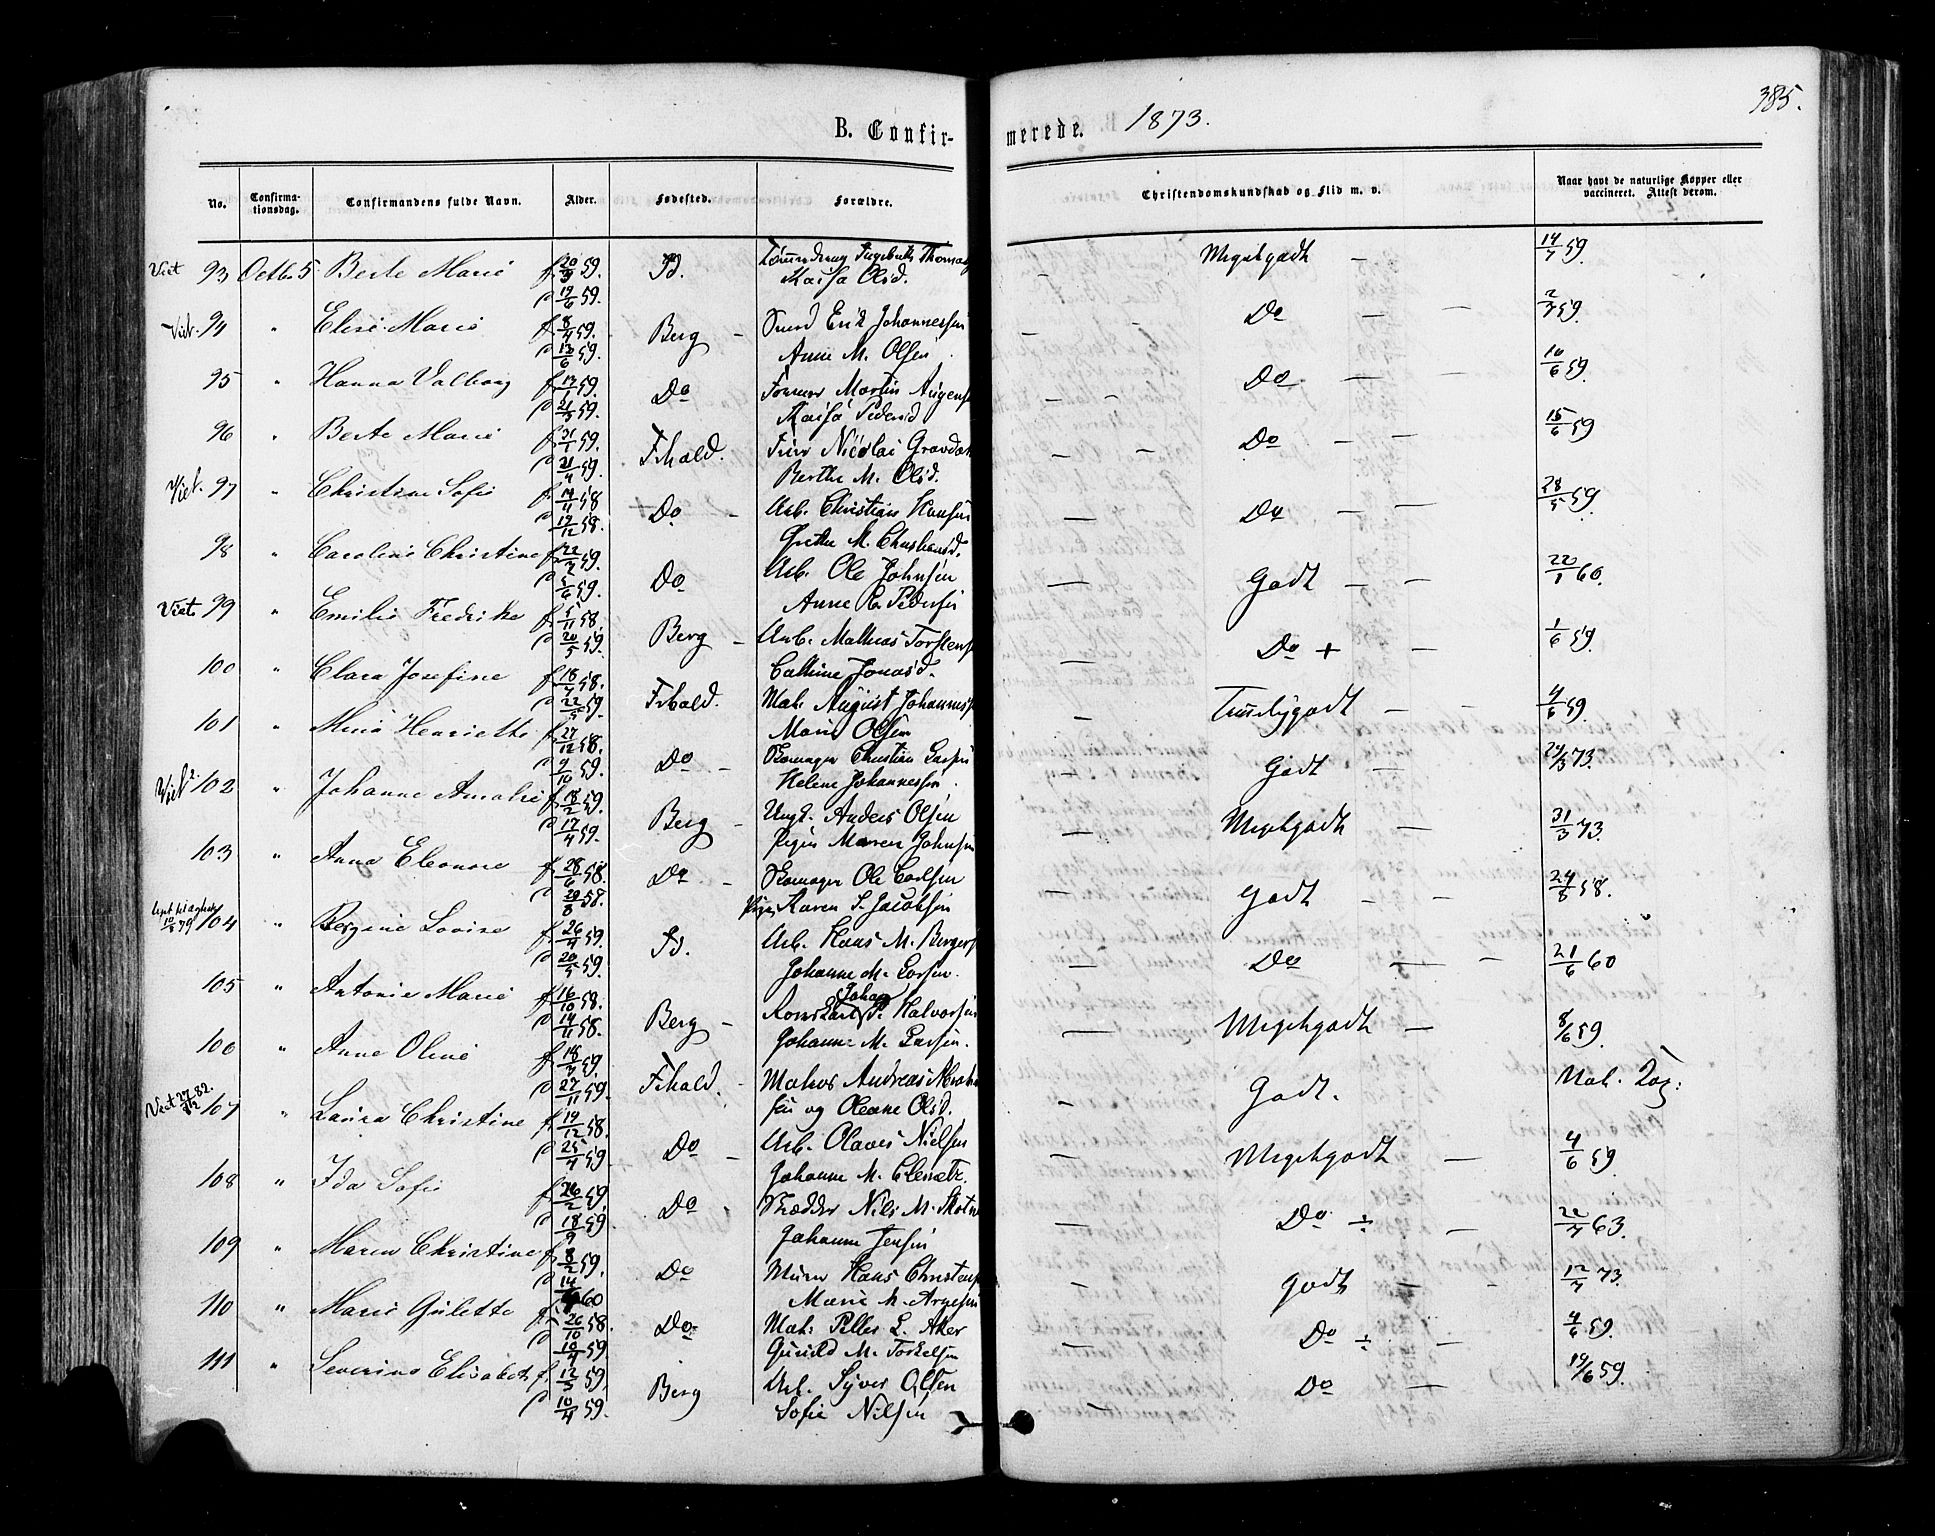 385.
B. Confir- merede. 1873.
No. Confirma-tionsdag. Confirmandens fulde Navn. Alder. Fødested. Forældre. Christendomskundskab og Flid m. v. Naar havt de naturlige Kopper eller vaccineret. Attest derom.
Viet 93 Octbr 5 Berte Marie f. 20/3 59. Id. Meget godt — 14/7 59.
d 19/6 59. Olsd.
Viet. 94 " Elise Marie f. 8/4 59. Berg — Erik Johannessen — Do — — 2/7 59.
d 13/6 59. Anne M. Olsen
95 " Hanna Valborg f. 59. Do Martin — — Do — — 10/6 59.
d 21/5 59. Pedersd
96 " Berte Marie f. 31/1 59. Frhald. Nicolai — — Do — — 15/6 59
d 21/4 59. Berthe M. Olsd.
Viet. 97 " Christine Sofie f. 14/4 58 Do — Arb. Christian Hansen — Do — — 28/5 59.
d 19/12 58. Grethe M.
98 " Caroline Christine f. 22/2 59. Do Arb. Ole Johnsen — Godt — — 22/1 60.
d 5/6 59. Anne R. Pedersen
Viet 99 " Emilie Fredrikke f. 5/11 58. Berg — Arb. Mathias Torstens — Do + — 1/6 59.
d 20/5 59. Jonasd.
100 " Clara Josefine f. 18/7 58. Frhald. Mat. August Johanness — godt — — 4/6 59.
d 22/5 59. Marie Olsen
101 " Mina Henriette f. 27/12 58. Do — Skomager Christian Larsen — Godt — 73.
d 9/10 59. Helene Johannessen
Viet 102 " Johanne Amalie f. 18/2 59. Berg — Ungk. Anders Olsen — Meget godt — 31/3 73.
d 17/4 59. Pigen Maren Johnsen
103 " Anna Eleonore f. 28/6 58. Do — Skomager Ole Carlsen — Godt — — 24/8 58.
d 29/8 58. Pigen Karen S. Jacobsen
104 " Louise f. 26/4 59. Id. Arb. Hans M. — Do — — 21/6 60
d 20/5 59. Johanne M. Larsen.
105 " Antonie Marie f. 16/10 58. Berg — Johan Halvorsen — Meget godt — 8/6 59.
d 14/11 58. Johanne M. Larsen.
106 " Anne Oline f. 18/7 59. Frhald. — Andreas — Godt. Mat.
d 27/11 59. sen og Oleane Olsd.
Viet 82. 107 " Laura Christine f. 19/12 58. Do — Arb. Olaves Nielsen — Meget godt — 4/6 59
d 25/4 59. Johanne M.
108 " Ida Sofie f. 26/2 59. Do — Nils M. — Do ÷ — 22/7 63.
d 18/9 59. Johanne Jensen
109 " Maren Christine f. 8/2 59. Do Murer Hans — godt — - 12/7 73.
d 60 Marie M.
110 " Marie Gulette f. 26/10 58. Do Mat. L. Aker — Do ÷ — 4/6 59.
d 10/4 59. Gunild M. Torkelsen
111 " Severine Elisabeth f. 12/3 59. Berg Arb. Syver Olsen — Do — 19/6 59.
d 10/4 59. Sofie Nilsen